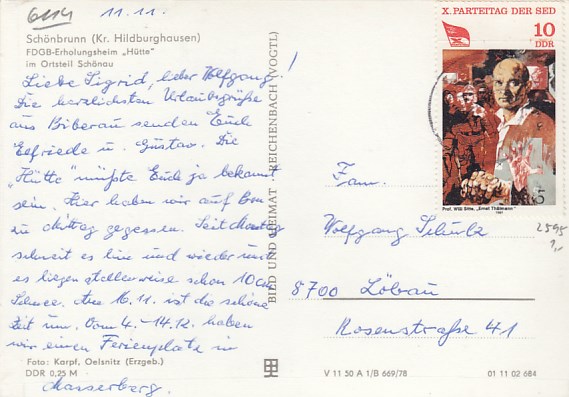 6114
11.11.
Schönbrunn (Kr. Hildburghausen)
FDGB-Erholungsheim „Hütte"
im Ortsteil Schönau
Liebe Sigrid, lieber Wolfgang!
Die herzlichsten Urlaubsgrüße
aus Biberau senden Euch
Elfriede u. Gustav. Die
„Hütte" müßte Euch ja bekannt
sein. Hier haben wir auf
zu Mittag gegessen. Seit Montag
schneit es hin und wieder und
es liegen stellenweise schon 10 cm
Schnee. Am 16.11. ist die schöne
Zeit um. Vom 4.-14.12. haben
wir einen Ferienplatz in
Masserberg.
Foto: Karpf, Oelsnitz (Erzgeb.)
DDR 0,25 M
BILD UND HEIMAT REICHENBACH (VOGTL)
X. PARTEITAG DER SED
10
DDR
Prof. Willi Sitte, „Ernst Thälmann"
1981
2595
1,-
Fam.
Wolfgang Schulz
8700 Löbau
Rosenstraße 41
V 11 50 A 1/B 669/78
01 11 02 684